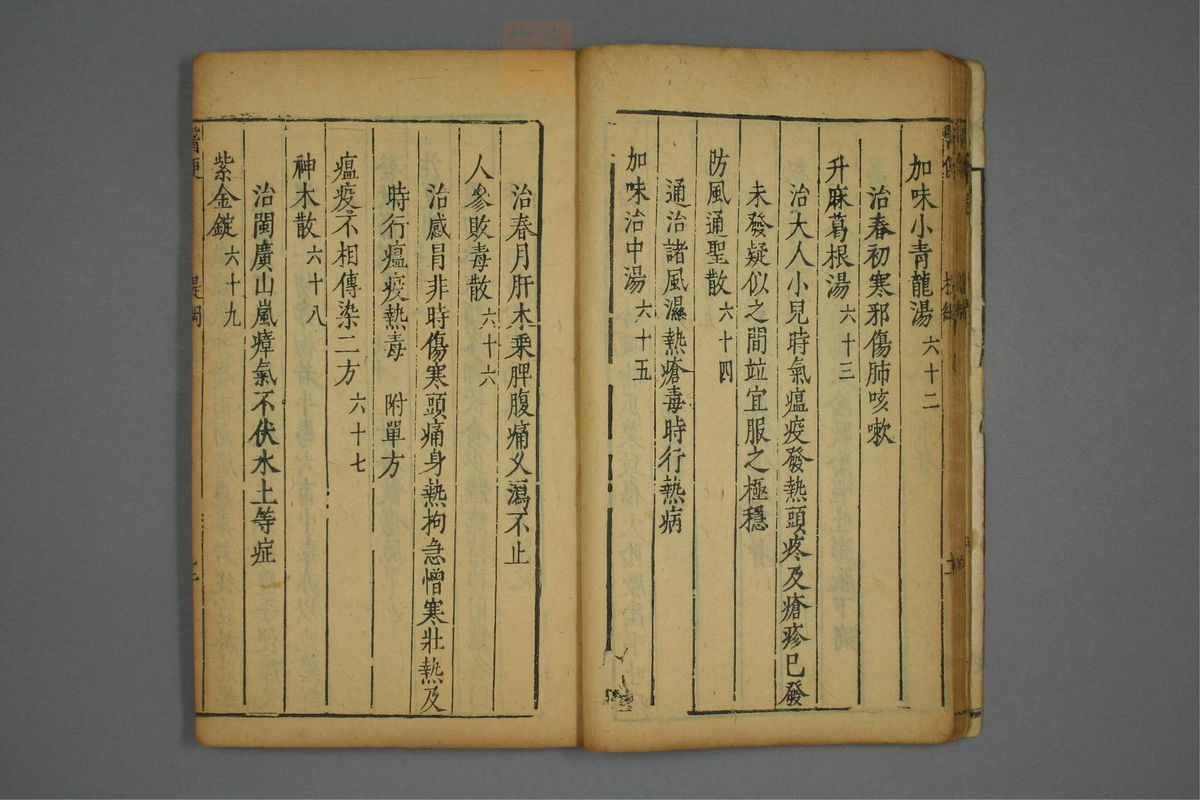 加味小青龍湯 六十二
治春初寒邪傷肺咳嗽
升麻葛根湯 六十三
治大人小兒時氣瘟疫發熱頭疼及瘡疹已發
未發疑似之間竝宜服之極穩
防風通聖散 六十四
通治諸風濕熱瘡毒時行熱病
加味治中湯 六十五
治春月肝木乘脾腹痛又瀉不止
人參敗毒散 六十六
治感冒非時傷寒頭痛身熱拘急憎寒壯熱及
時行瘟疫熱毒 附單方
瘟疫不相傳染二方 六十七
神木散 六十八
治閩廣山嵐瘴氣不伏水土等症
紫金錠 六十九
醫便 提綱